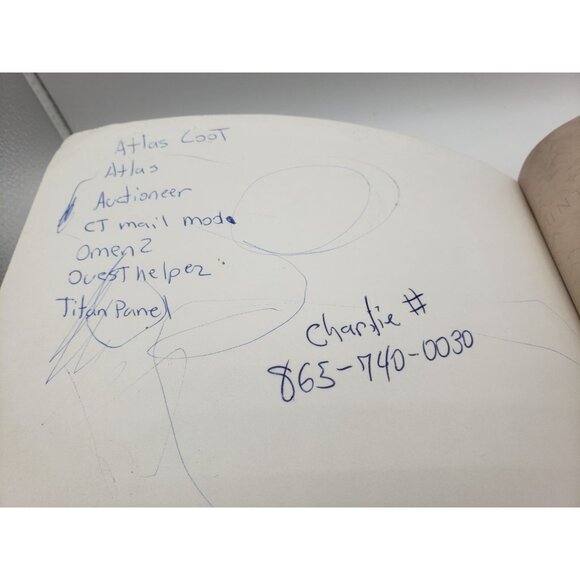 Atlas Loot
Atlas
Auctioneer
CT mail mod
Omen 2
Quest helper
Titan Panel
Charlie #
865-740-0030